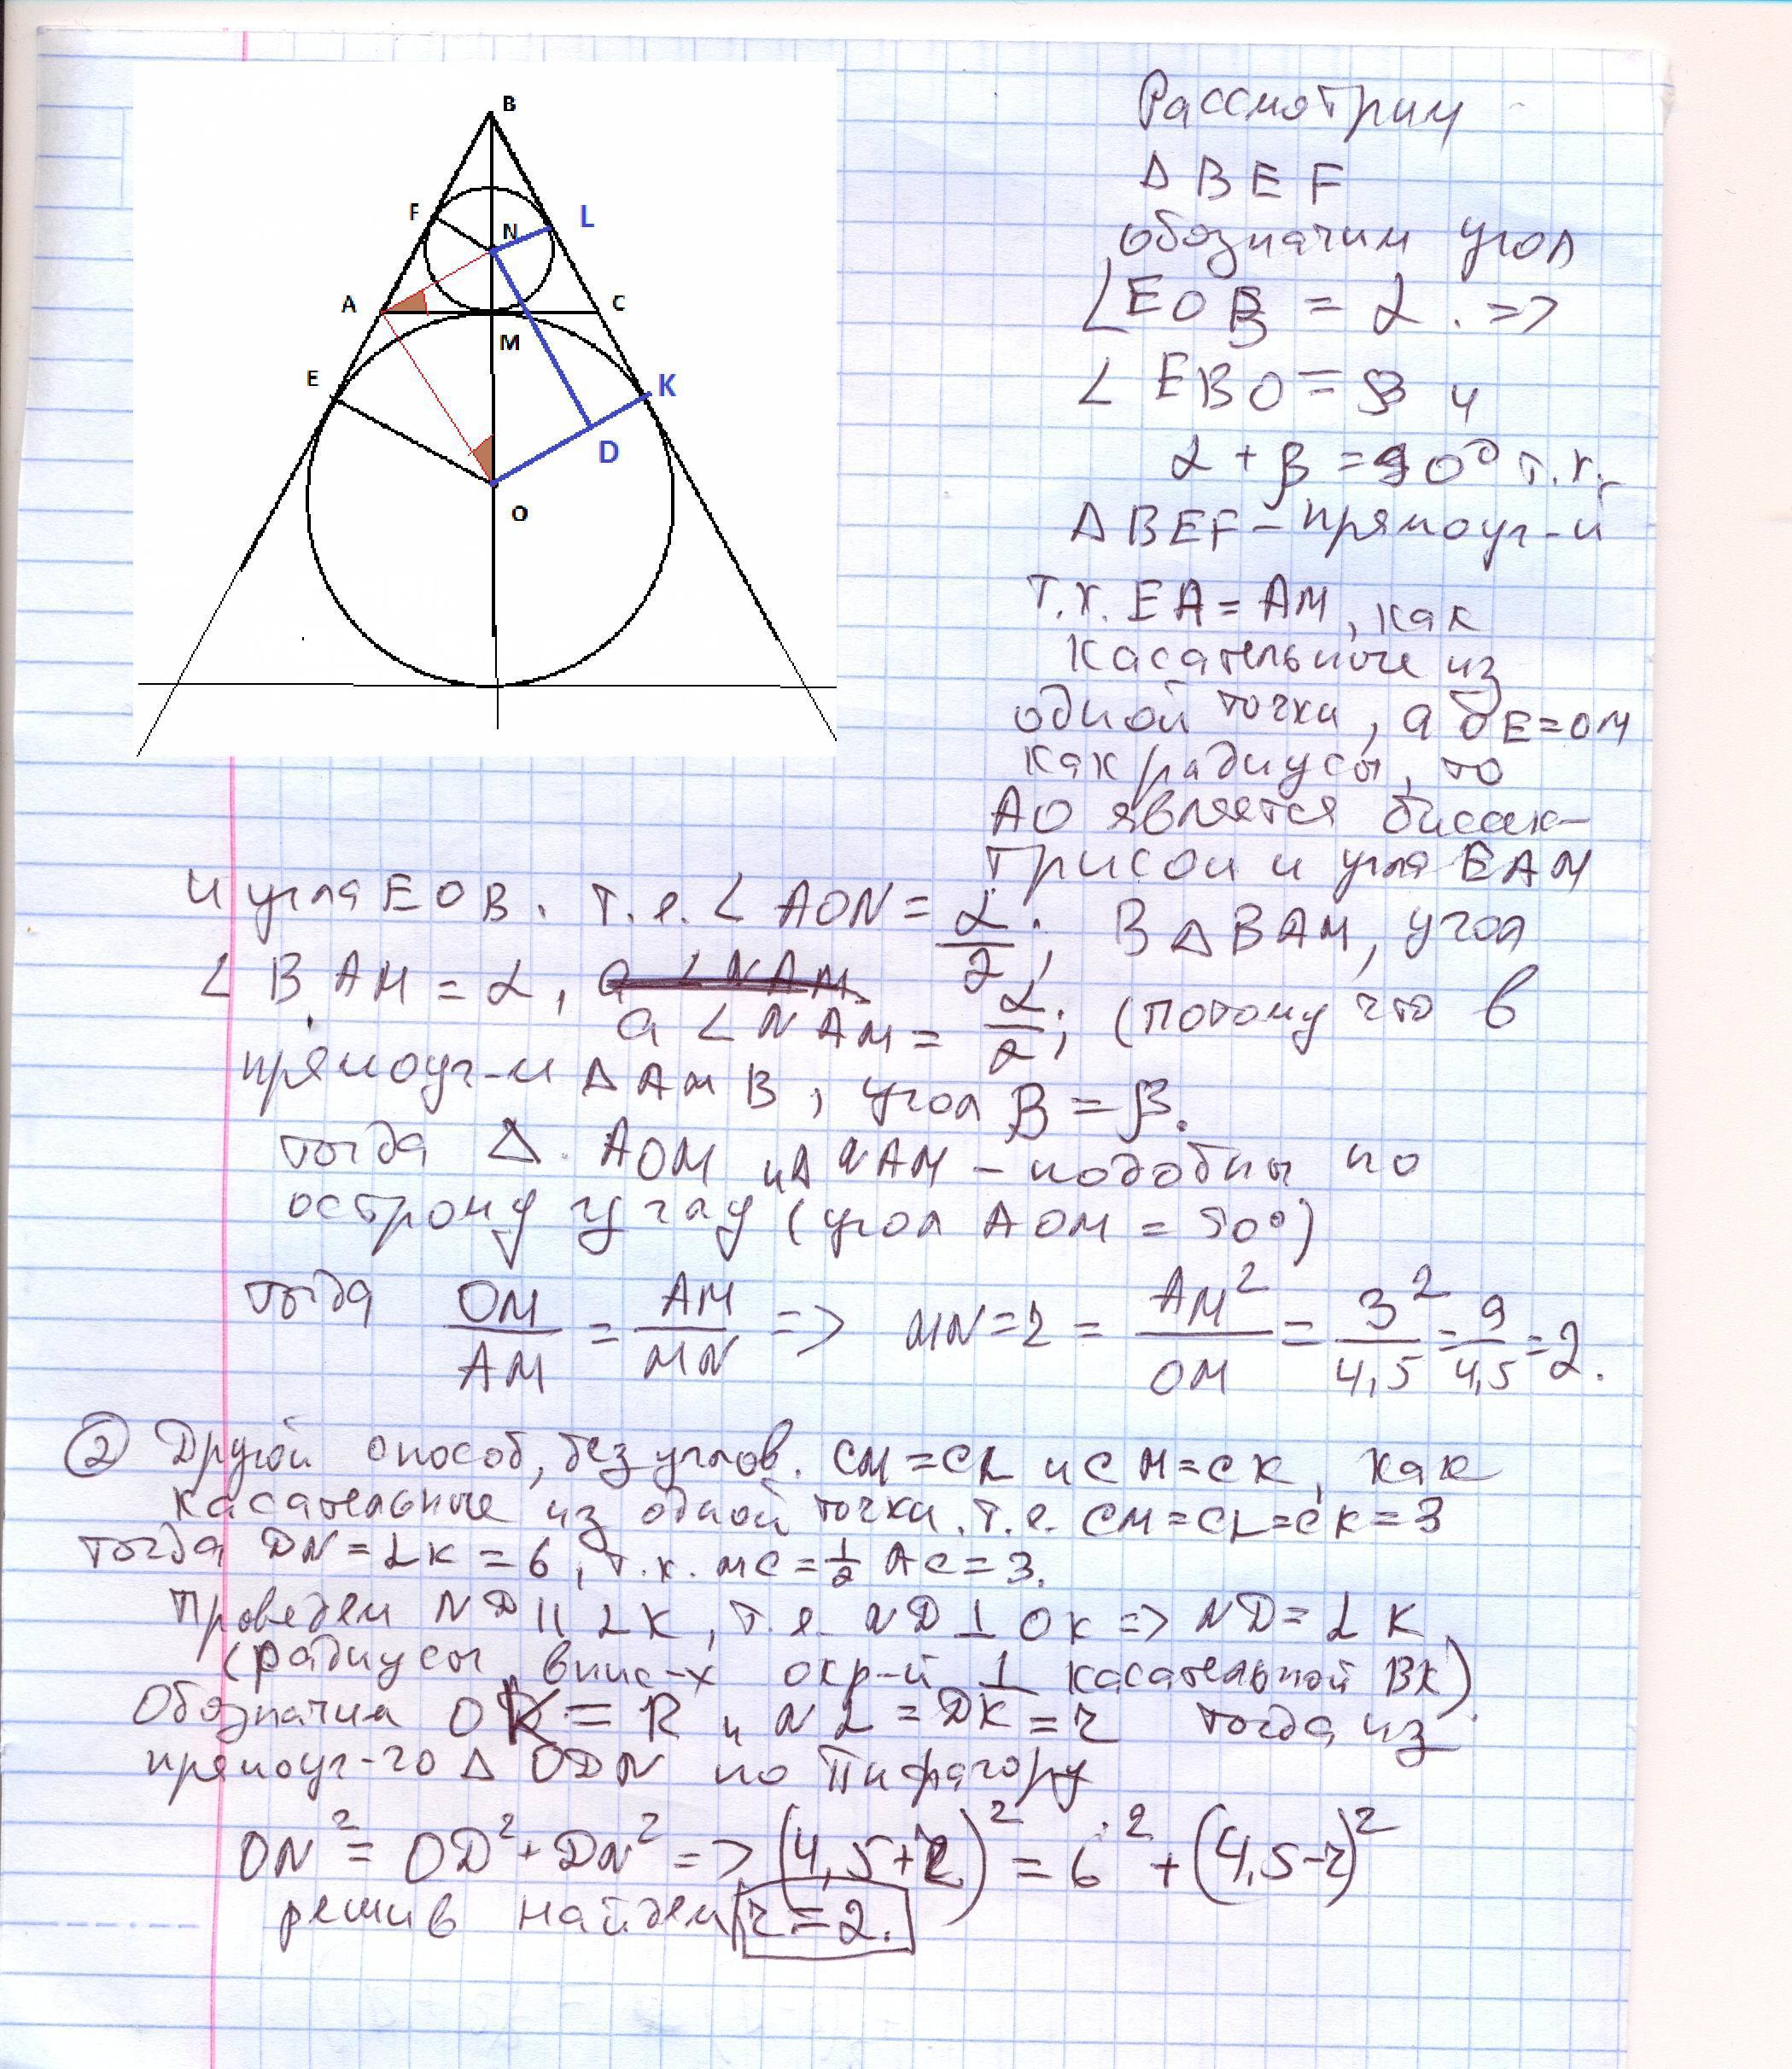 B
F
N
L
A
C
M
E
K
D
O
Рассмотрим
Δ BEF
обозначим угол
∠EOB = α . =>
∠ EBO = β и
α + β = 90° т.к.
Δ BEF – прямоуг-й
т.к. EA = AM, как
касательные из
одной точки, а OE = OM
как радиусы, то
AO является биссек-
трисой и угла EAM
и угла EOB. т.е. ∠ AON = α/2; В Δ BAM, угол
∠ BAM = α, а ∠ NAM
а ∠ NAM = α/2; (потому что в
прямоуг-м Δ AMB, угол B = β.
тогда Δ AOM и Δ NAM – подобны по
острому углу (угол AOM = 90°)
тогда OM/AM = AM/MN => MN = r = AM²/OM = 3²/4,5 = 9/4,5 = 2.
② Другой способ, без углов. CM = CL и CM = CK, как
касательные из одной точки. т.е. CM = CL = CK = 3
тогда DN = LK = 6, т.к. MC = 1/2 AC = 3.
Проведем ND || LK, т.е. ND ⊥ OK => ND = LK
(радиусы впис-х окр-й ⊥ касательной BK)
Обозначим OK = R и NL = DK = r тогда из
прямоуг-го Δ ODN по Пифагору
ON² = OD² + DN² => (4,5+r)² = 6² + (4,5-r)²
решив найдем r = 2.